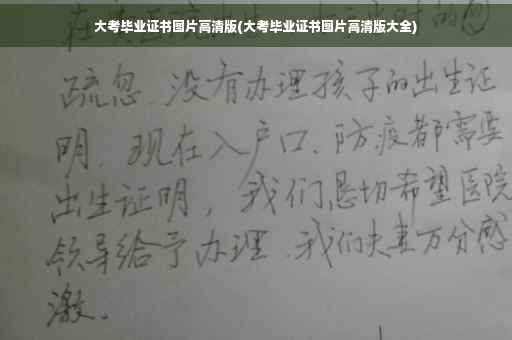 大考毕业证书图片高清版(大考毕业证书图片高清版大全)
疏忽.没有办理孩子的出生证
明.现在入户口、防疫都需要
出生证明，我们恳切希望医院
领导给予办理.我们夫妻万分感
激。